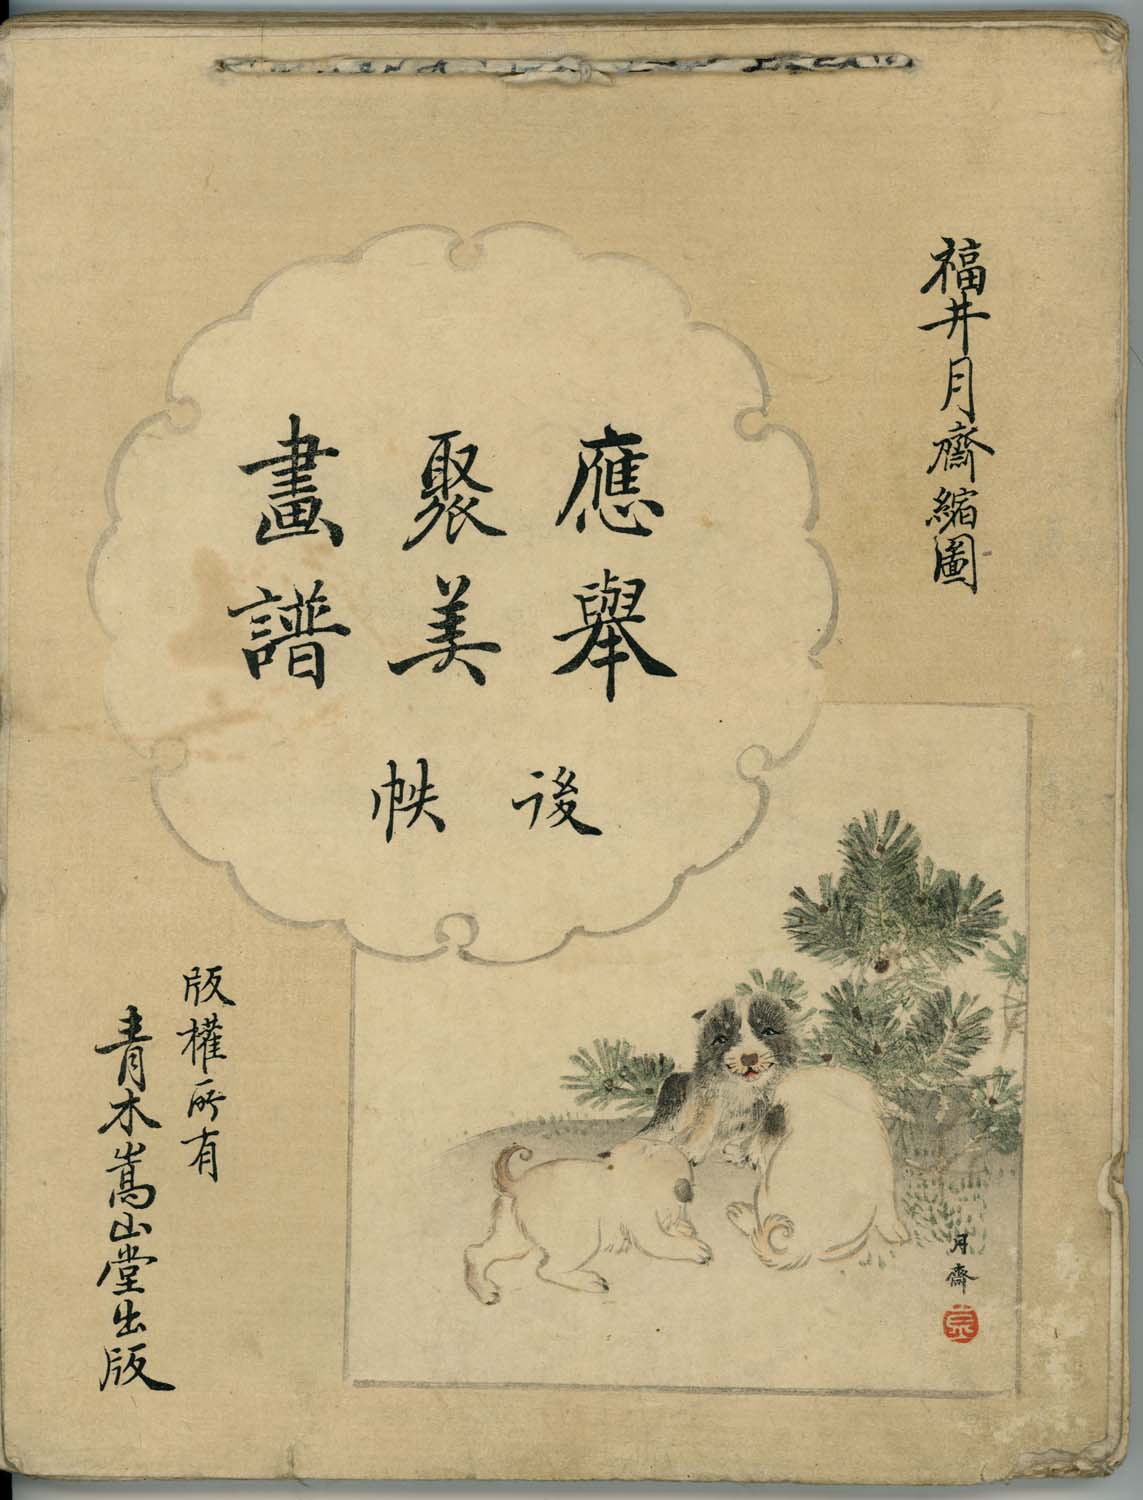 福井月齋縮圖
應舉
聚美
畫譜
後
帙
月齋
版權所有
青木嵩山堂出版